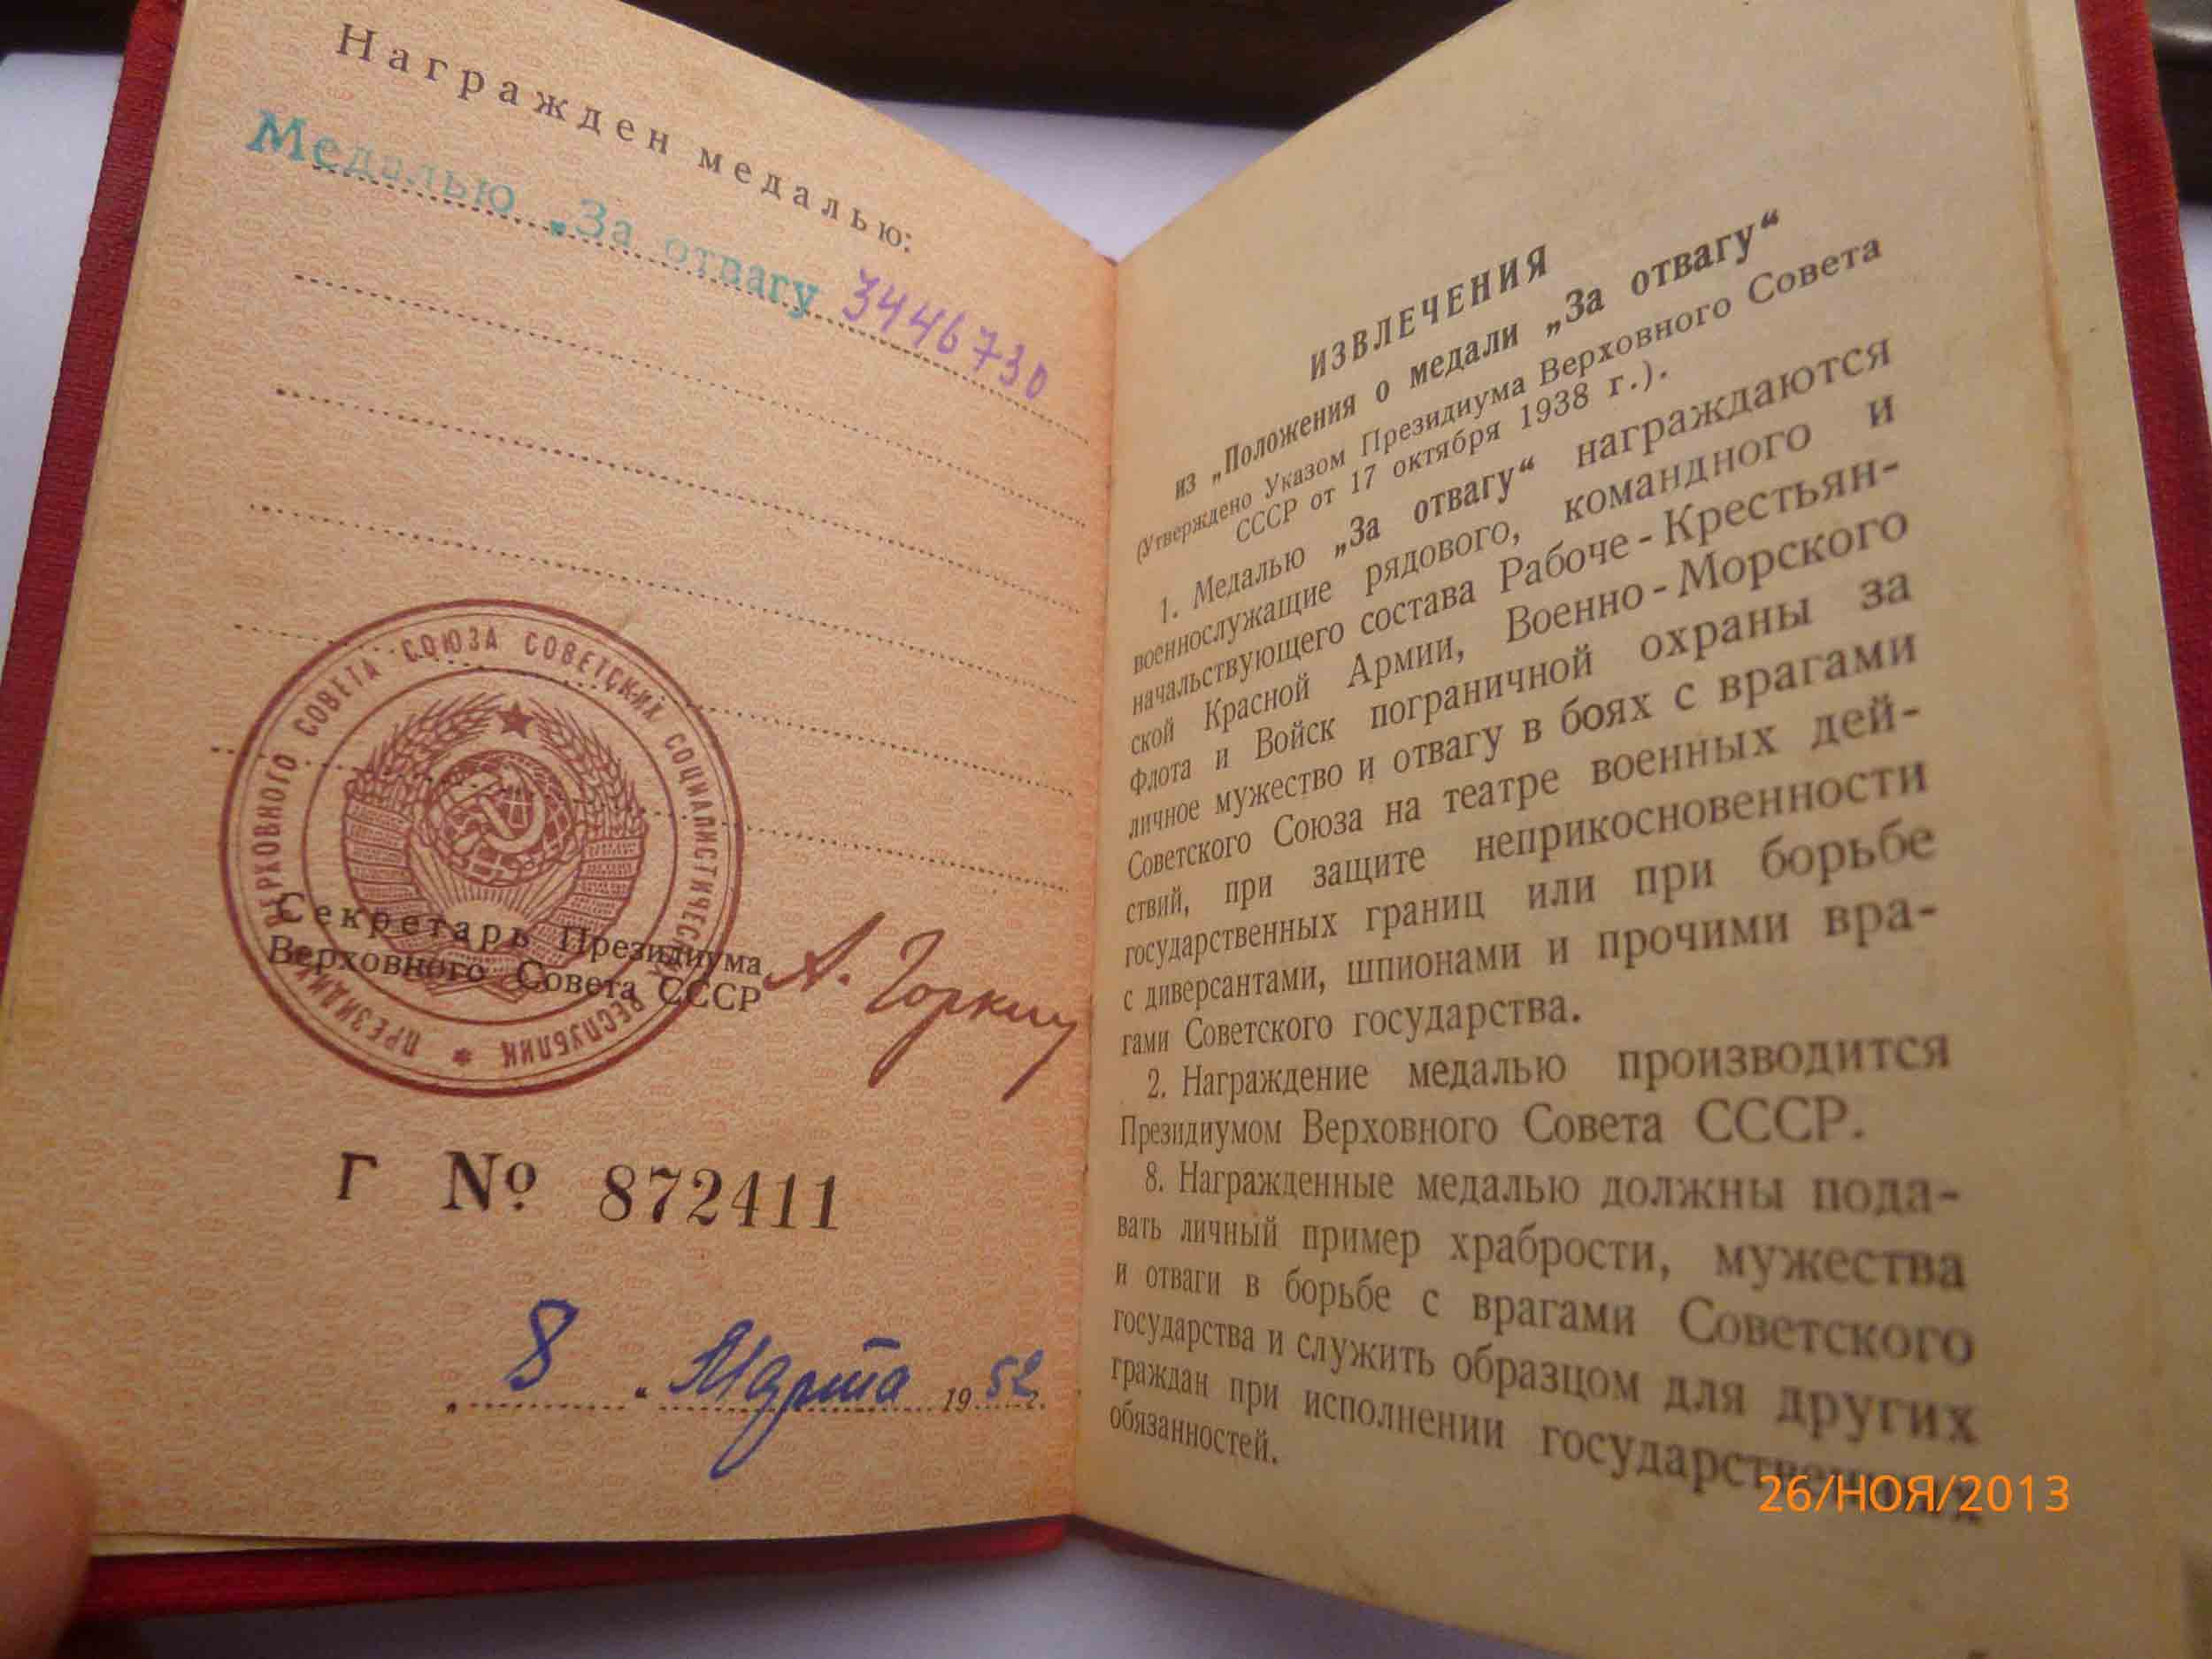 Награжден медалью:
Медалью „За отвагу 3446730
ПРЕЗИДИУМ ВЕРХОВНОГО СОВЕТА СОЮЗА СОВЕТСКИХ СОЦИАЛИСТИЧЕСКИХ РЕСПУБЛИК *
Секретарь Президиума
Верховного Совета СССР
А. Горкин
Г № 872411
„ 8 “ Марта 1952 г.
ИЗВЛЕЧЕНИЯ
из „Положения о медали „За отвагу“
(Утверждено Указом Президиума Верховного Совета
СССР от 17 октября 1938 г.).
1. Медалью „За отвагу“ награждаются
военнослужащие рядового, командного и
начальствующего состава Рабоче-Крестьян-
ской Красной Армии, Военно-Морского
Флота и Войск пограничной охраны за
личное мужество и отвагу в боях с врагами
Советского Союза на театре военных дей-
ствий, при защите неприкосновенности
государственных границ или при борьбе
с диверсантами, шпионами и прочими вра-
гами Советского государства.
2. Награждение медалью производится
Президиумом Верховного Совета СССР.
8. Награжденные медалью должны пода-
вать личный пример храбрости, мужества
и отваги в борьбе с врагами Советского
государства и служить образцом для других
граждан при исполнении
обязанностей.
26/НОЯ/2013